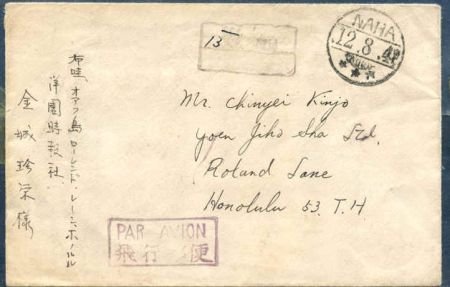 NAHA
12.8.
13
布哇オアフ島ローレンド・レーン、ホノルル
洋園時報社
金城珍栄様
Mr. Chinyei Kinjo
Yoen Jiho Sha Ltd.
Roland Lane
Honolulu 53. T.H
PAR AVION
飛行 便